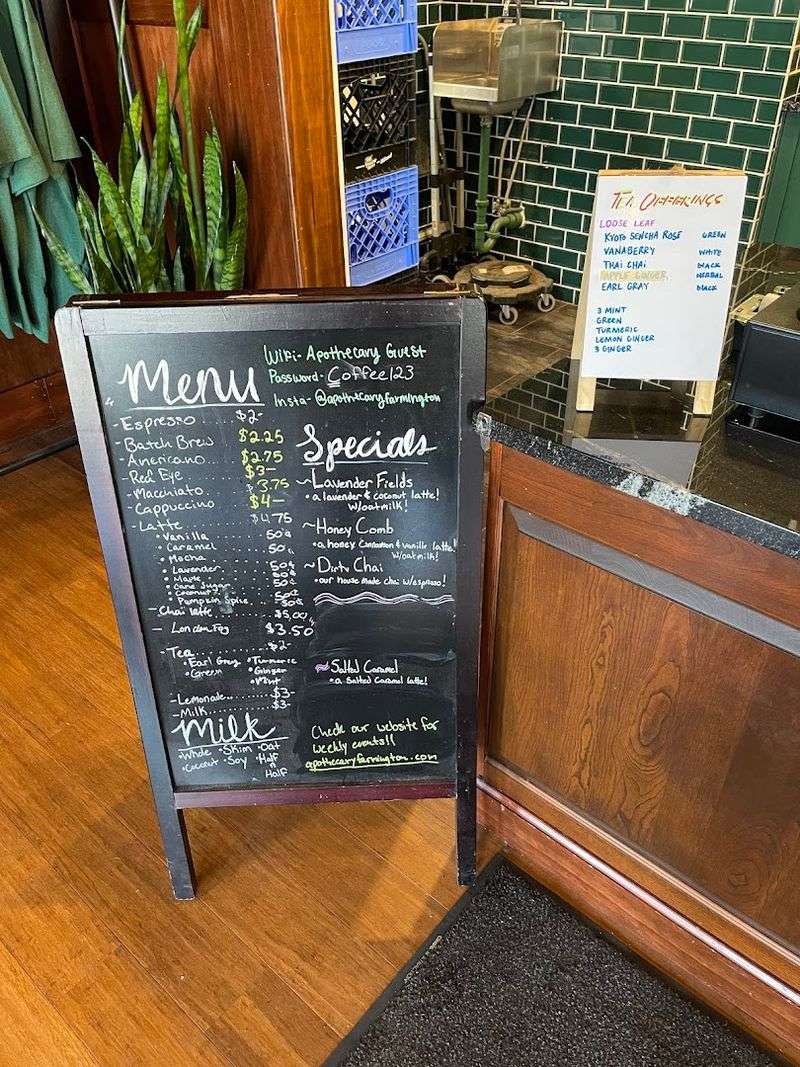 Menu
WiFi- Apothecary Guest
Password- Coffee123
Insta- @apothecaryfarmington
-Espresso $2-
-Batch Brew $2.25
-Americano... $2.75
-Red Eye $3-
-Macchiato $3.75
-Cappuccino $4-
-Latte $4.75
•Vanilla 50¢
•Caramel 50¢
•Mocha
•Lavender 50¢
•Maple 50¢
•Cane Sugar 50¢
•Coconut
•Pumpkin Spice 50¢
-Chai latte $5.00
- London Fog $3.50
-Tea $2-
•Earl Grey •Turmeric
•Green •Ginger
•Mint
-Lemonade $3-
-Milk $3-
Milk
•Whole •Skim •Oat
•Coconut •Soy •Half
n
Half
Specials
~Lavender Fields
•a lavender & coconut latte!
w/oatmilk!
~Honey Comb
•a honey cinnamon & vanilla latte!
w/oatmilk!
~Dirty Chai
•our house made chai w/espresso!
Salted Caramel
•a Salted Caramel latte!
Check our website for
weekly events!!
apothecaryfarmington.com
TEA OFFERINGS
LOOSE LEAF
KYOTO SENCHA ROSE GREEN
VANABERRY WHITE
THAI CHAI BLACK
APPLE GINGER HERBAL
EARL GRAY BLACK
3 MINT
GREEN
TURMERIC
LEMON GINGER
3 GINGER